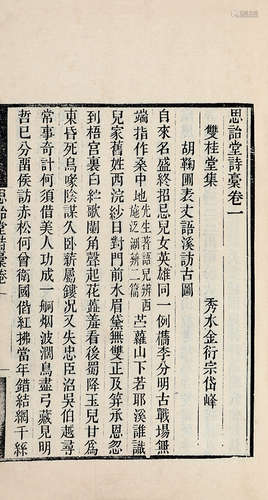 思詒堂詩稾卷一
雙桂堂集
秀水金衍宗岱峰
胡鞠圃表丈語溪訪古圖
自來名盛終招忌兒女英雄同一例檇李分明古戰場無
端指作桑中地先生著語兒辨西施泛湖辨二篇苎蘿山下若耶溪誰識
兒家舊姓西浣紗日對門前水眉黛無雙正及笄承恩忽
到梧宮裏白紵歌闌角聲起花蘂羞看後蜀降玉兒甘爲
東昏死烏喙陰謀久臥薪屬鏤况又失忠臣沼吳伯越尋
常事奇計何須借美人功成一舸烟波濶鳥盡弓藏見明
哲已分罶侯訪赤松何曾衛國偕紅拂當年錯結網千絲
思詒堂詩稾卷一